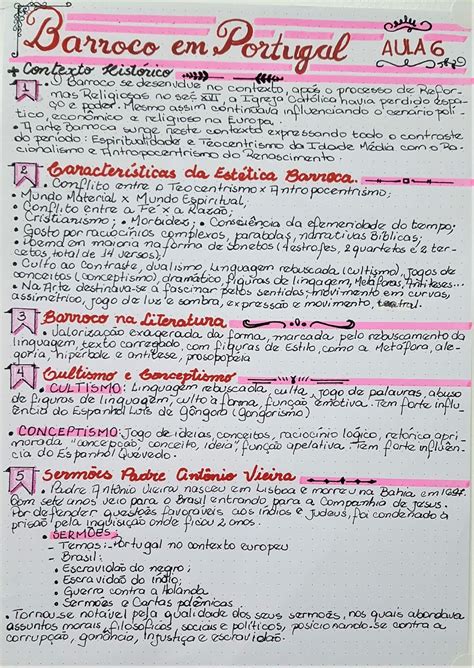 Barroco em Portugal AULA 6
+ Contexto Histórico
1 • O Barroco se desenvolve no contexto, após o processo de Refor-
mas Religiosas no sec XVI, a Igreja Católica havia perdido espa-
ço e poder. Mesmo assim continuava influenciando o cenário polí-
tico, econômico e religioso na Europa.
• A arte Barroca surge neste contexto expressando todo o contraste
do período: Espiritualidade e Teocentrismo da Idade Média com o Ra-
cionalismo e Antropocentrismo do Renascimento.
2 Características da Estética Barroca.
• Conflito entre o Teocentrismo x Antropocentrismo;
• Mundo Material x Mundo Espiritual;
• Conflito entre a Fé x a Razão;
• Cristianismo; • Morbidez; • Consciência da efemeridade do tempo;
• Gosto por raciocínios complexos, parábolas, narrativas Bíblicas;
• Poema em maioria na forma de sonetos (4 estrofes, 2 quartetos e 2 ter-
cetos total de 14 versos);
• Culto ao contraste, dualismo, linguagem rebuscada (cultismo), jogos de
conceitos (conceptismo), dramático, figuras de lingagem, Metáforas, Antíteses...
• Na Arte destinava-se a fascinar pelos sentidos; movimento em curvas,
assimétrico, jogo de luz e sombra, expressão e movimento, teatral.
3 Barroco na Literatura
• Valorização exagerada da forma, marcada pelo rebuscamento da
linguagem, texto carregado com figuras de Estilo, como a Metáfora, ale-
goria, hipérbole e antítese, prosopopeia
4 Cultismo e Conceptismo
• CULTISMO: Linguagem rebuscada, culta, jogo de palavras, abuso
de figuras de linguagem, culto à forma, função emotiva. Tem forte influ-
ência do Espanhol Luís de Gôngora (Gongorismo)
• CONCEPTISMO: Jogo de ideias, conceitos, raciocínio lógico, retórica apri-
morada "concepção, conceito, ideia" função apelativa. Tem forte influên-
cia do Espanhol Quevedo.
5 Sermões Padre Antônio Vieira
• Padre Antônio Vieira nasceu em Lisboa e morreu na Bahia em 1697.
Com sete anos veio para o Brasil entrando para a Companhia de Jesus.
Por defender questões favoráveis aos índios e judeus, foi condenado à
prisão pela inquisição onde ficou 2 anos.
• SERMÕES:
- Temas: - Portugal no contexto europeu
- Brasil;
• Escravidão do negro;
• Escravidão do índio;
• Guerra contra a Holanda
• Sermões e Cartas polêmicas
• Tornou-se notável pela qualidade dos seus sermões, nos quais abordava
assuntos morais, filosóficos, sociais e políticos, posicionando-se contra a
corrupção, ganância, injustiça e escravidão.